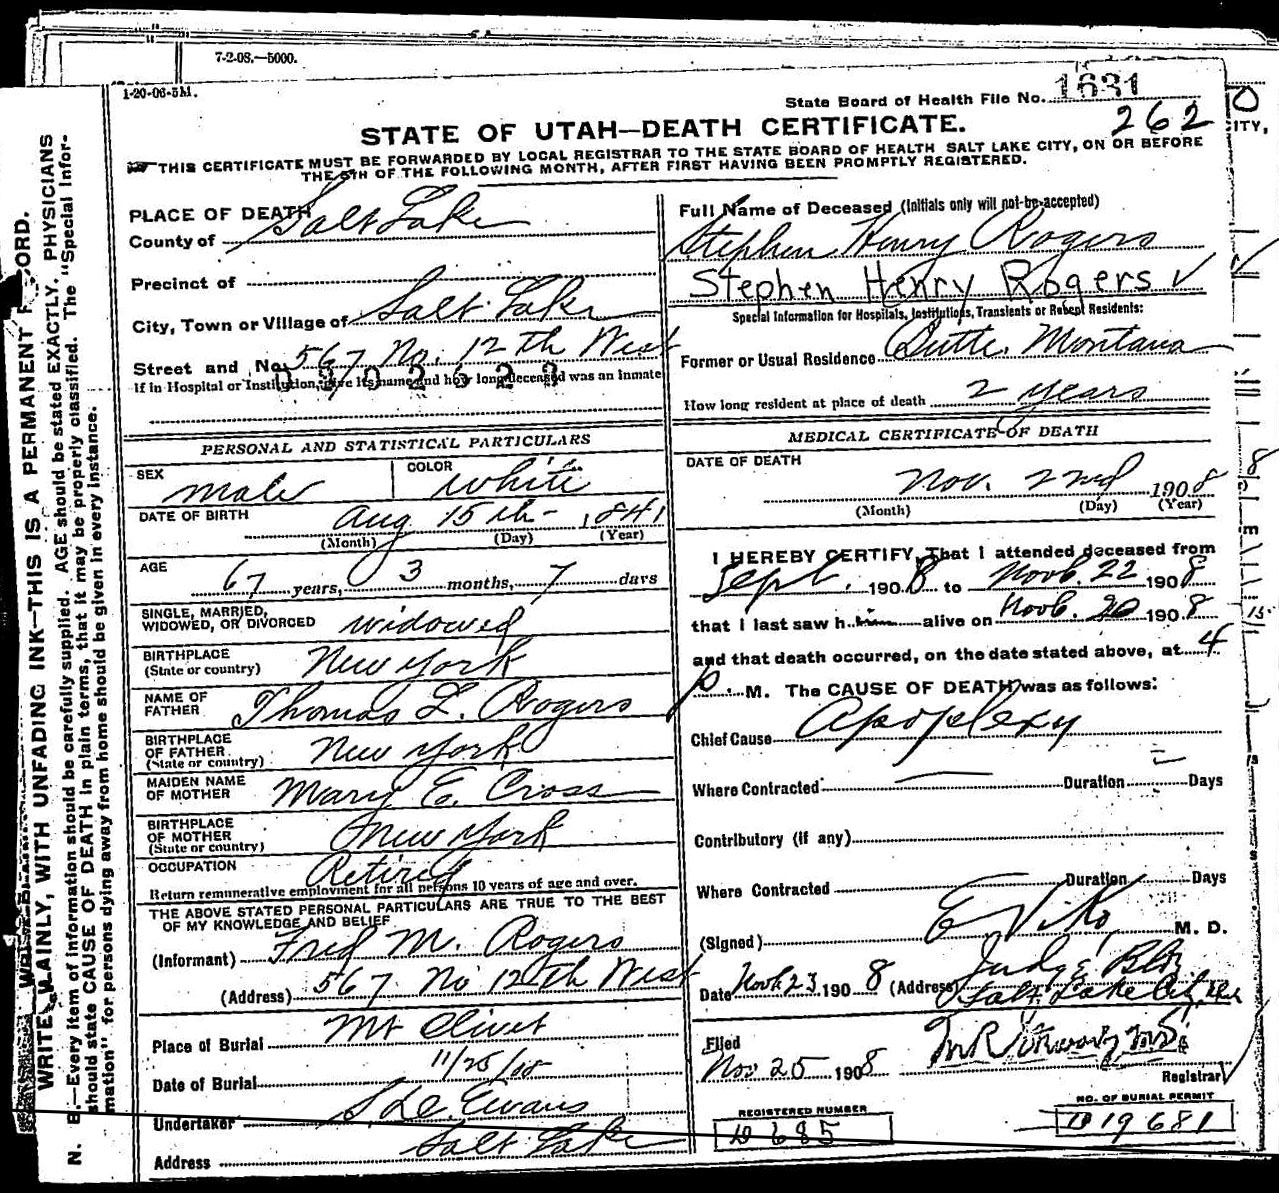 7-2-08.—5000.
1-20-06-5M.
State Board of Health File No. 1631
262
STATE OF UTAH—DEATH CERTIFICATE.
THIS CERTIFICATE MUST BE FORWARDED BY LOCAL REGISTRAR TO THE STATE BOARD OF HEALTH SALT LAKE CITY, ON OR BEFORE
THE 5TH OF THE FOLLOWING MONTH, AFTER FIRST HAVING BEEN PROMPTLY REGISTERED.
PLACE OF DEATH
County of Salt Lake
Precinct of
City, Town or Village of Salt Lake
Street and No. 567 No. 12th West
If in Hospital or Institution, give its name and how long deceased was an inmate
Full Name of Deceased (Initials only will not be accepted)
Stephen Henry Rogers
Stephen Henry Rogers ✓
Special Information for Hospitals, Institutions, Transients or Recent Residents:
Former or Usual Residence Butte, Montana
How long resident at place of death 2 years
PERSONAL AND STATISTICAL PARTICULARS
SEX male
COLOR white
DATE OF BIRTH Aug 15th 1841
(Month) (Day) (Year)
AGE 67 years, 3 months, 7 days
SINGLE, MARRIED,
WIDOWED, OR DIVORCED widowed
BIRTHPLACE
(State or country) New York
NAME OF
FATHER Thomas L. Rogers
BIRTHPLACE
OF FATHER
(State or country) New York
MAIDEN NAME
OF MOTHER Mary E. Cross
BIRTHPLACE
OF MOTHER
(State or country) New York
OCCUPATION Retired
Return remunerative employment for all persons 10 years of age and over.
THE ABOVE STATED PERSONAL PARTICULARS ARE TRUE TO THE BEST
OF MY KNOWLEDGE AND BELIEF
(Informant) Fred M. Rogers
(Address) 567 No 12th West
Place of Burial Mt Olivet
Date of Burial 11/25/08
Undertaker Evans
Address Salt Lake
MEDICAL CERTIFICATE OF DEATH
DATE OF DEATH
Nov. 22nd 1908
(Month) (Day) (Year)
I HEREBY CERTIFY, That I attended deceased from
Sept. 1908 to Novb. 22 1908
that I last saw him alive on Novb. 20 1908
and that death occurred, on the date stated above, at 4
p. M. The CAUSE OF DEATH was as follows:
Chief Cause Apoplexy
Where Contracted Duration Days
Contributory (if any)
Where Contracted Duration Days
(Signed) E Viko, M. D.
Date Novb 23 1908 (Address) Judge Bld
Salt Lake City
Filed
Nov 25 1908
Registrar
REGISTERED NUMBER
D 685
NO. OF BURIAL PERMIT
D 19681
WRITE PLAINLY, WITH UNFADING INK—THIS IS A PERMANENT RECORD.
N. B.—Every item of information should be carefully supplied. AGE should be stated EXACTLY. PHYSICIANS
should state CAUSE OF DEATH in plain terms, that it may be properly classified. The "Special Infor-
mation" for persons dying away from home should be given in every instance.